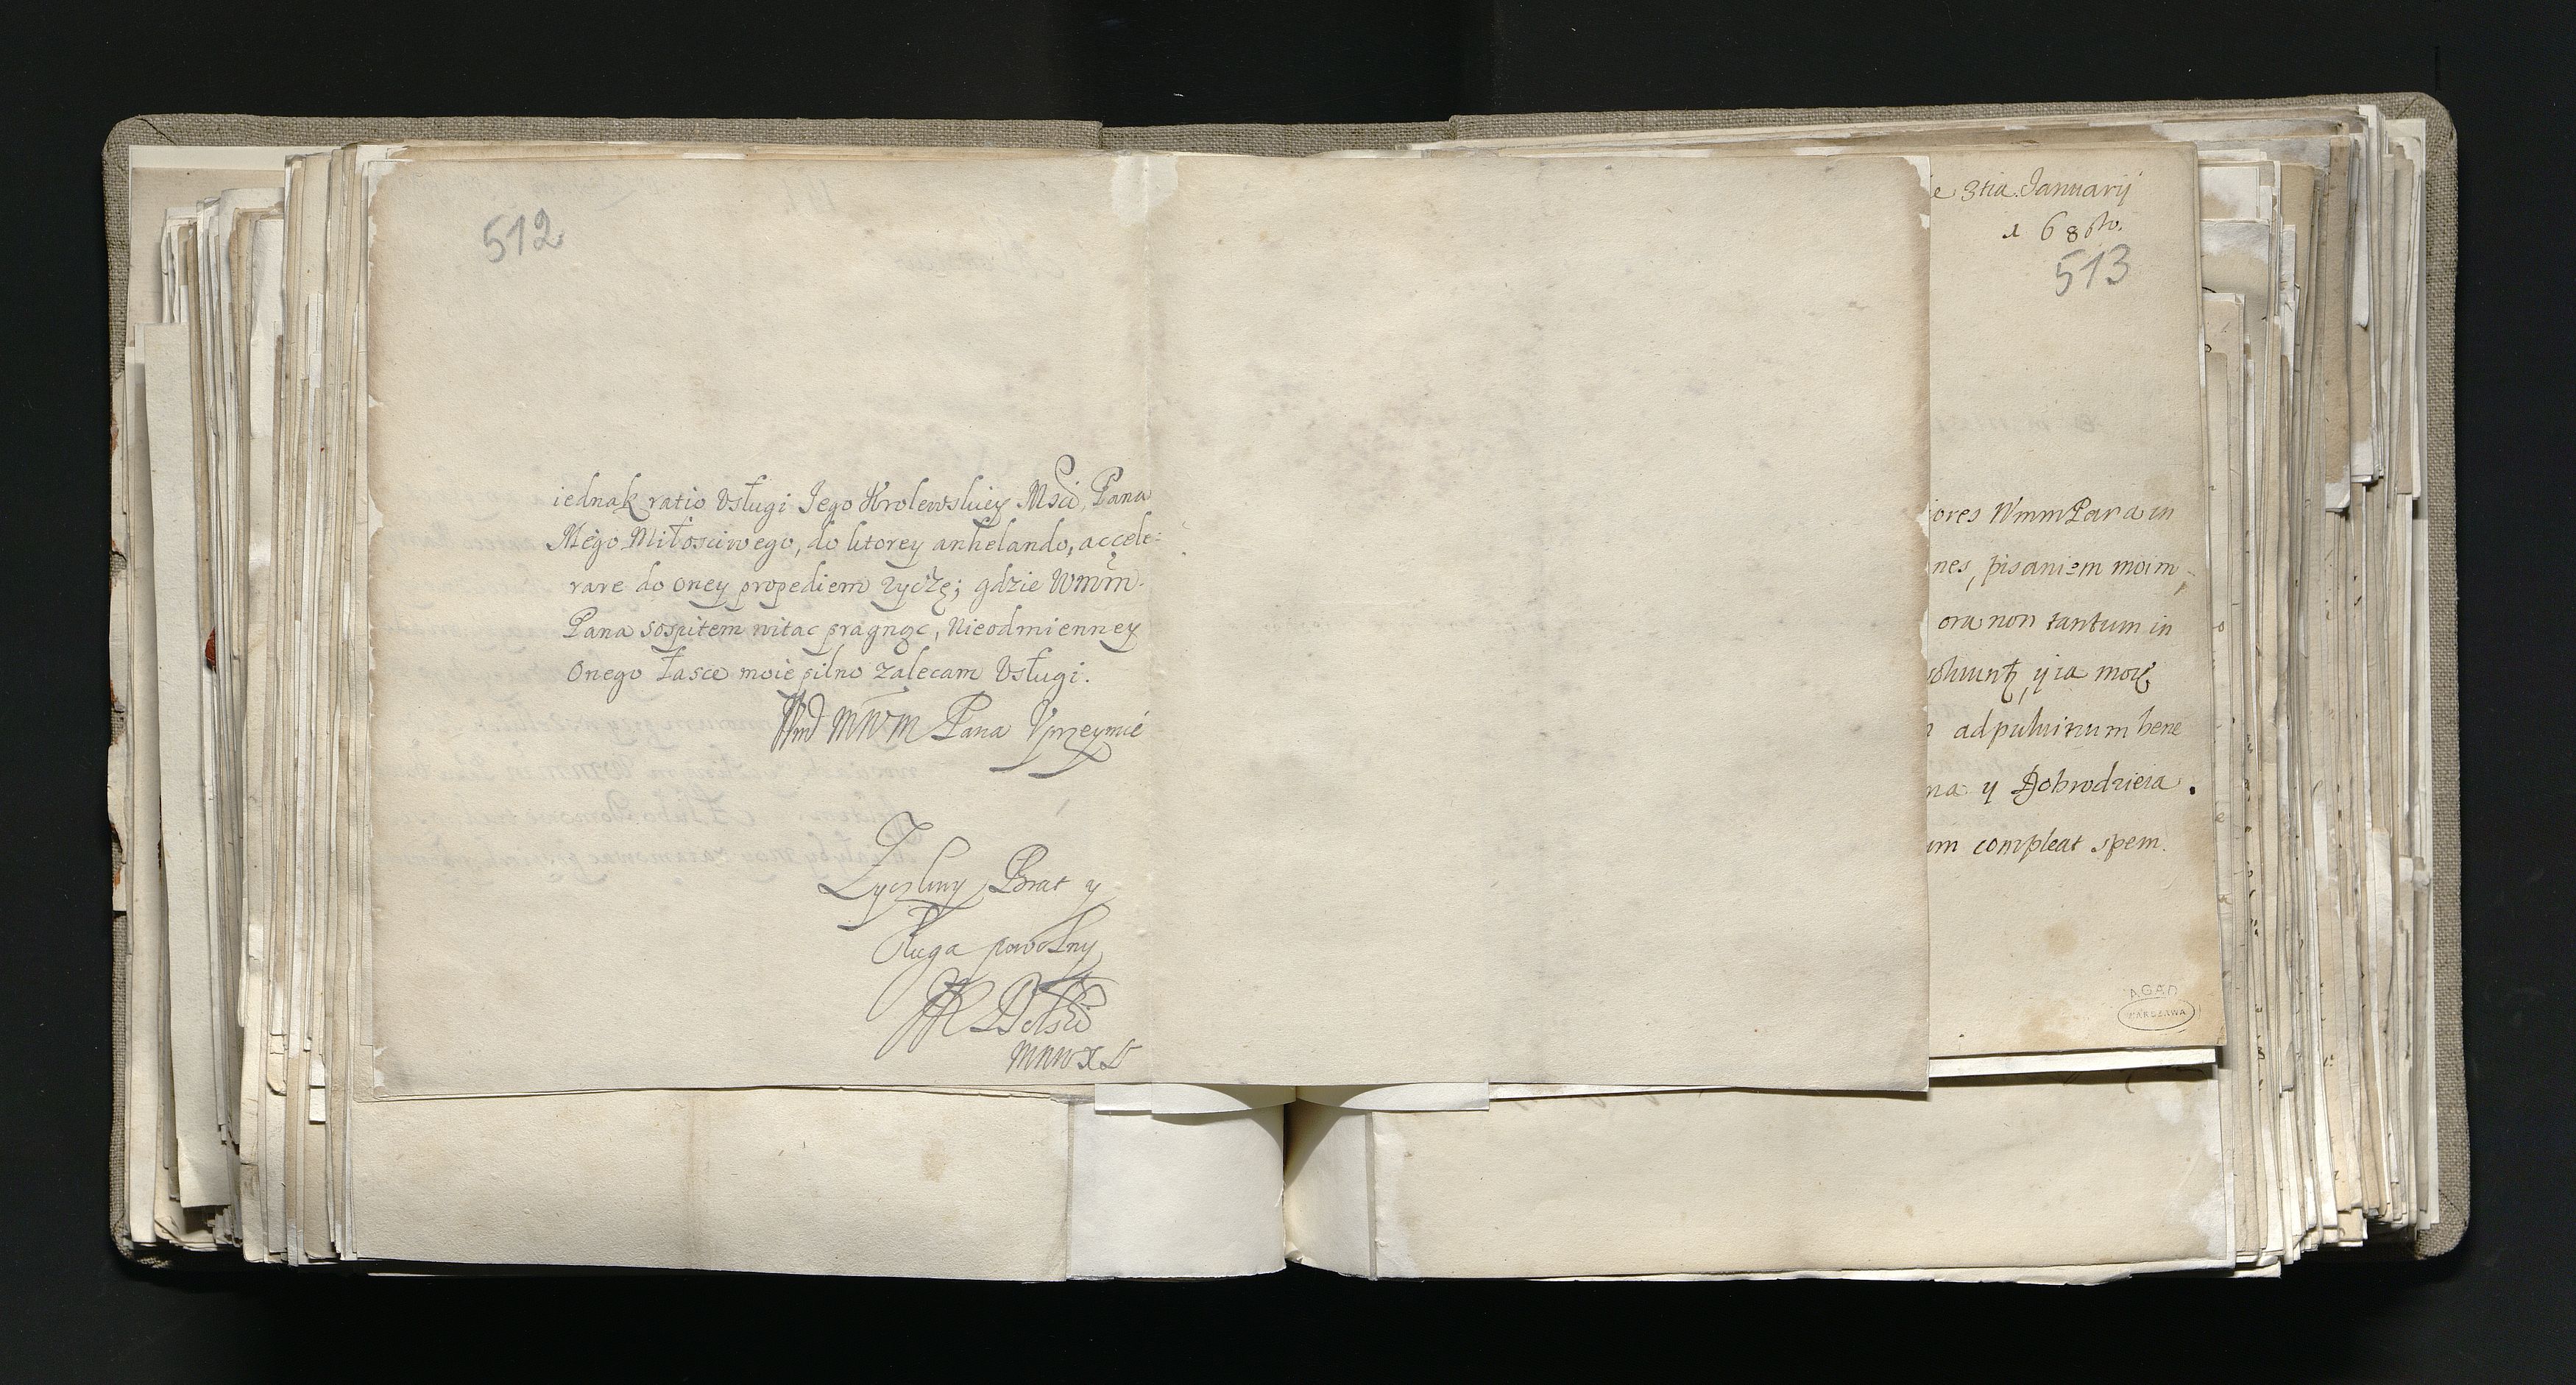 512
iednak ratio Vsługi Jego Krolewskiey Msci, Pana
Mego Miłosciwego, do ktorey anhelando, accele=
rare do oney propediem zyczę; gdzie Wmm.
Pana sospitem witac pragnąc, Nieodmienney
Onego Łasce moie pilno zalecam Vsługi.
Wmd MWM Pana Vprzeymie
Zyczliwy Brat y
Sługa powolny
Dolski
MNWXL
e 3tia Januarij
1686to.
513
iores WmmPana in
nes, pisaniem moim,
ora non tantum in
y ia
ad puluinum bene
na y Dobrodzieia.
um compleat spem.
AGAD
WARSZAWA